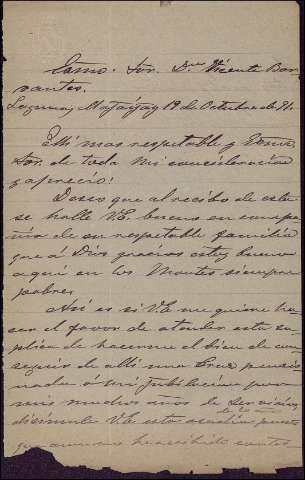 Exmo. Sor. Dn. Vicente Bar
rantes.
Laguna, Majayjay 19 de Octubre de 71.
Mi mas respetable y Exmo.
Sor. de toda mi consideracion
y aprecio:
Deseo que al recibo de esta
se halle V.E. bueno en compa
ñia de su respetable familia
que á Dios gracias estoy bueno
aqui en los Montes siempre
pobre,
Asi es si V.E. me quiere ha
cer el favor de atender esta su
plica de hacerme el bien de con
seguir de allí una Cruz pensio
nada ó mi jubilacion por
mis muchos años de servicio
disimule V.E. esta
que